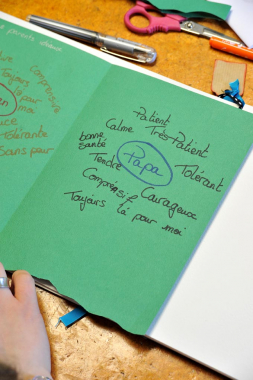 parents
Comprendre
Toujours
là pour
moi
Tolérante
Sans pour
Patient
Calme Très-Patient
bonne
santé
Papa
Tendre
Tolérant
Compréhensif
Courageux
Toujours là pour moi